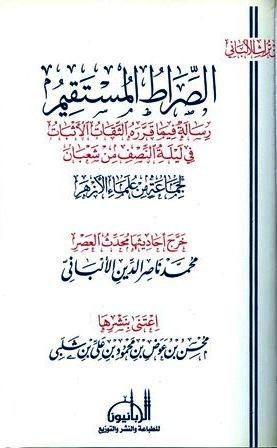 من تراث الألباني
الصراط المستقيم
رسالة فيما قرره الثقات الأثبات
في ليلة النصف من شعبان
لجماعة من علماء الأزهر
خرج أحاديثها محدث العصر
محمد ناصر الدين الألباني
اعتنى بنشرها
محسن بن عوض بن محمود بن علي بن شلبي
الربانيون
للطباعة والنشر والتوزيع